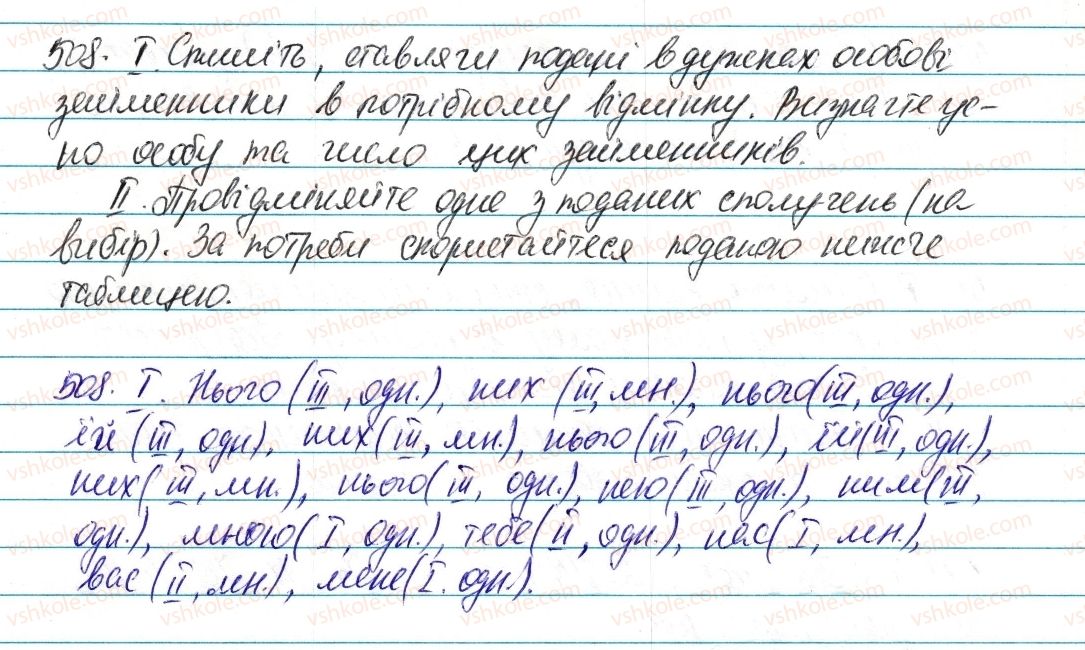 508. I. Спишіть, ставлячи подані в дужках особові
займенники в потрібному відмінку. Визначте ус-
но особу та число цих займенників.
II. Провідміняйте одне з поданих сполучень (на
вибір). За потреби скористайтеся поданою нижче
таблицею.
508. I. Нього (III, одн.), них (III, мн.), нього (III, одн.),
їй (III, одн), них (III, мн.), нього (III, одн.), їй (III, одн.),
них (III, мн.), нього (III, одн.), нею (III, одн.), ним (III,
одн.), мною (I, одн.), тебе (II, одн.), нас (I, мн.),
вас (II, мн.), мене (I. одн.).
vshkole.com